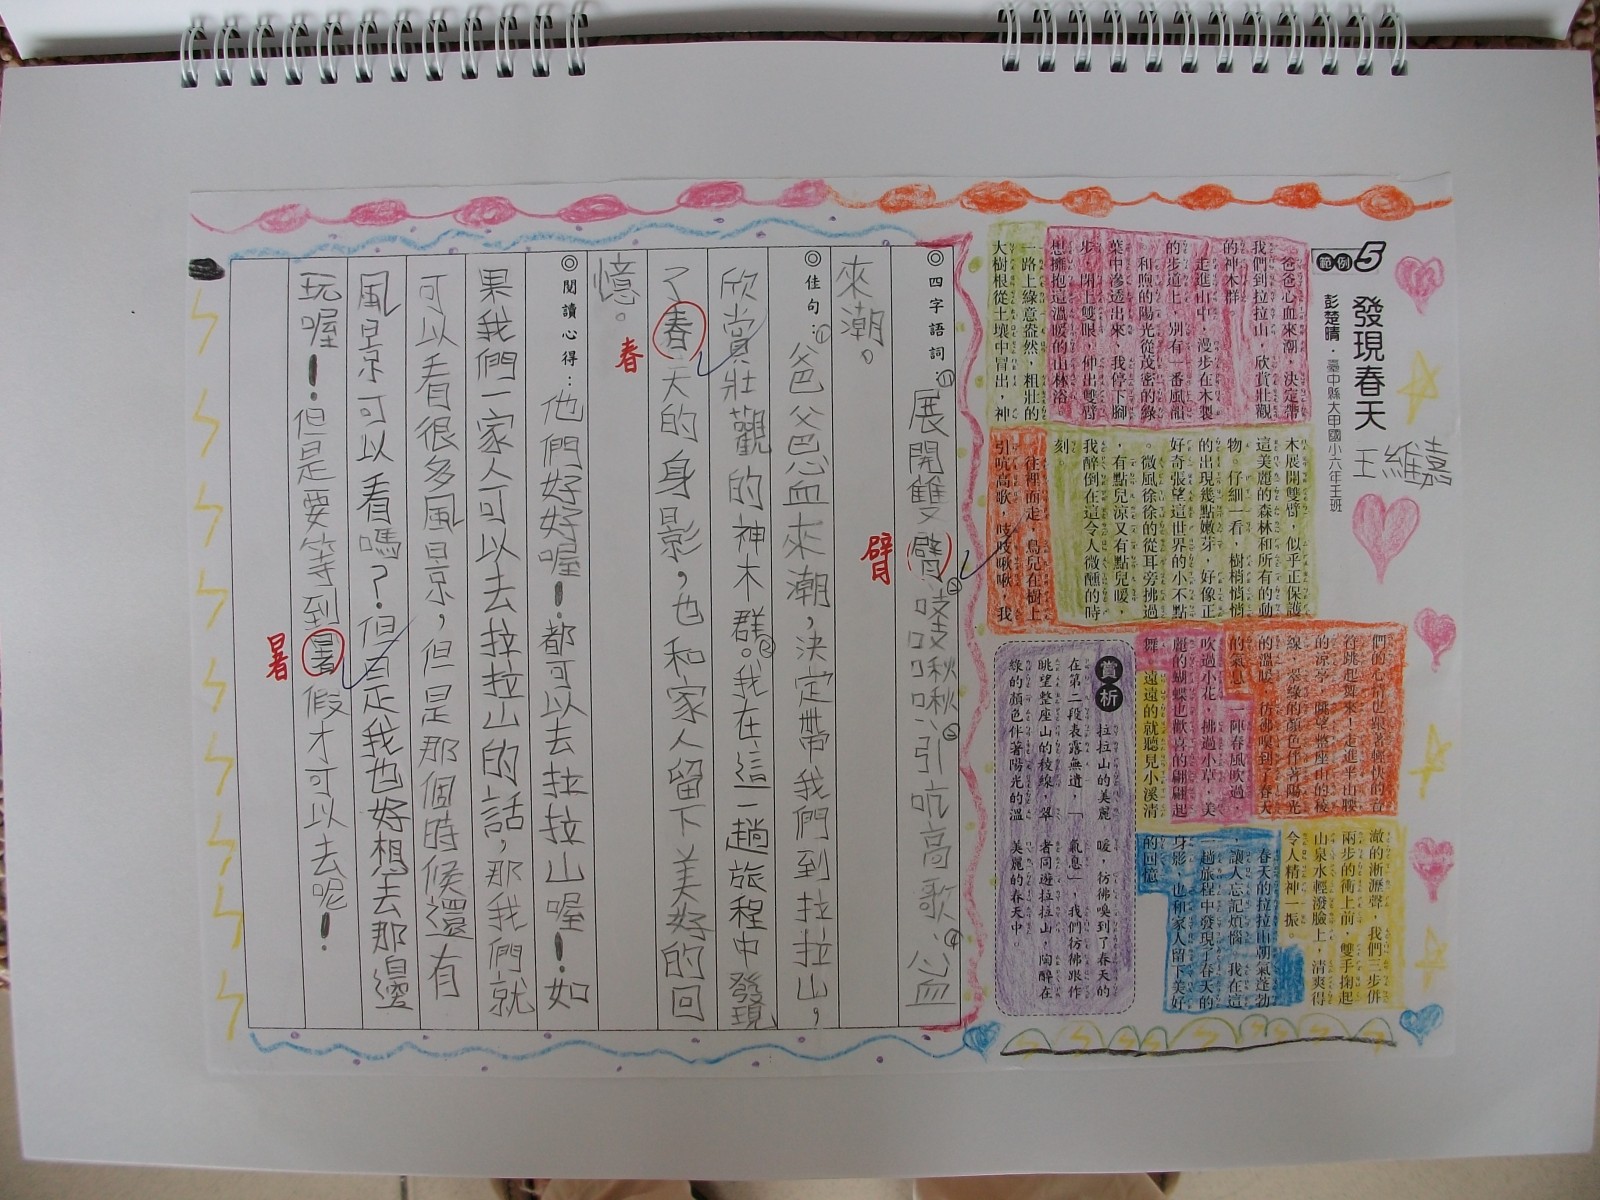 範例5
發現春天
彭楚晴・臺中縣大甲國小六年壬班
王維嘉
爸爸心血來潮，決定帶
我們到拉拉山，欣賞壯觀
的神木群。
走進山中，漫步在木製
的步道上，別有一番風韻
。和煦的陽光從茂密的綠
葉中滲透出來，我停下腳
步，閉上雙眼，伸出雙臂
想擁抱這溫暖的山林浴。
一路上綠意盎然，粗壯的
大樹根從土壤中冒出，神
木展開雙臂，似乎正保護
這美麗的森林和所有的動
物。仔細一看，樹梢悄悄
的出現幾點嫩芽，好像正
好奇張望這世界的小不點
。微風徐徐的從耳旁拂過
，有點兒涼又有點兒暖，
我醉倒在這令人微醺的時
刻。
往裡面走，鳥兒在樹上
引吭高歌，吱吱啾啾，我
們的心情也跟著輕快的音
符跳起舞來！走進半山腰
的涼亭，眺望整座山的稜
線，翠綠的顏色伴著陽光
的溫暖，彷彿嗅到了春天
的氣息。一陣春風吹過，
吹過小花，拂過小草，美
麗的蝴蝶也歡喜的翩翩起
舞，遠遠的就聽見小溪清
澈的淅瀝聲，我們三步併
兩步的衝上前，雙手掬起
山泉水輕潑臉上，清爽得
令人精神一振。
春天的拉拉山朝氣蓬勃
，讓人忘記煩惱，我在這
一趟旅程中發現了春天的
身影，也和家人留下美好
的回憶。
賞析
拉拉山的美麗
在第二段表露無遺，「
眺望整座山的稜線，翠
綠的顏色伴著陽光的溫
暖，彷彿嗅到了春天的
氣息」，我們彷彿跟作
者同遊拉拉山，陶醉在
美麗的春天中。
◎四字語詞：⑴展開雙臂⑵吱吱啾啾⑶引吭高歌⑷心血
來潮。
臂
◎佳句：⑴爸爸心血來潮，決定帶我們到拉拉山，
欣賞壯觀的神木群。⑵我在這一趟旅程中發現
了春天的身影，也和家人留下美好的回
春
憶。
◎閱讀心得：他們好好喔！都可以去拉拉山喔！如
果我們一家人可以去拉拉山的話，那我們就
可以看很多風景，但是那個時候還有
風景可以看嗎？但是我也好想去那邊
玩喔！但是要等到暑假才可以去呢！
暑